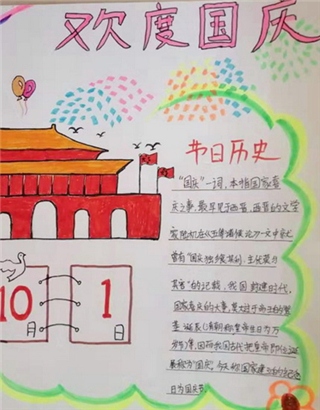 欢度国庆
节日历史
"国庆"一词，本指国家喜
庆之事，最早见于西晋。西晋的文学
家陆机在五等诸侯论一文中就
曾有"国庆独 其利，主忧莫
其害"的记载，我国封建时代、
国家喜庆的大事，莫大过于帝王的登
基、诞辰(清朝称皇帝生日为万
岁节)等，因而我国古代把皇帝即位诞
辰称为"国庆"，今天称国家建立的纪念
日为国庆节
10 1
月 日